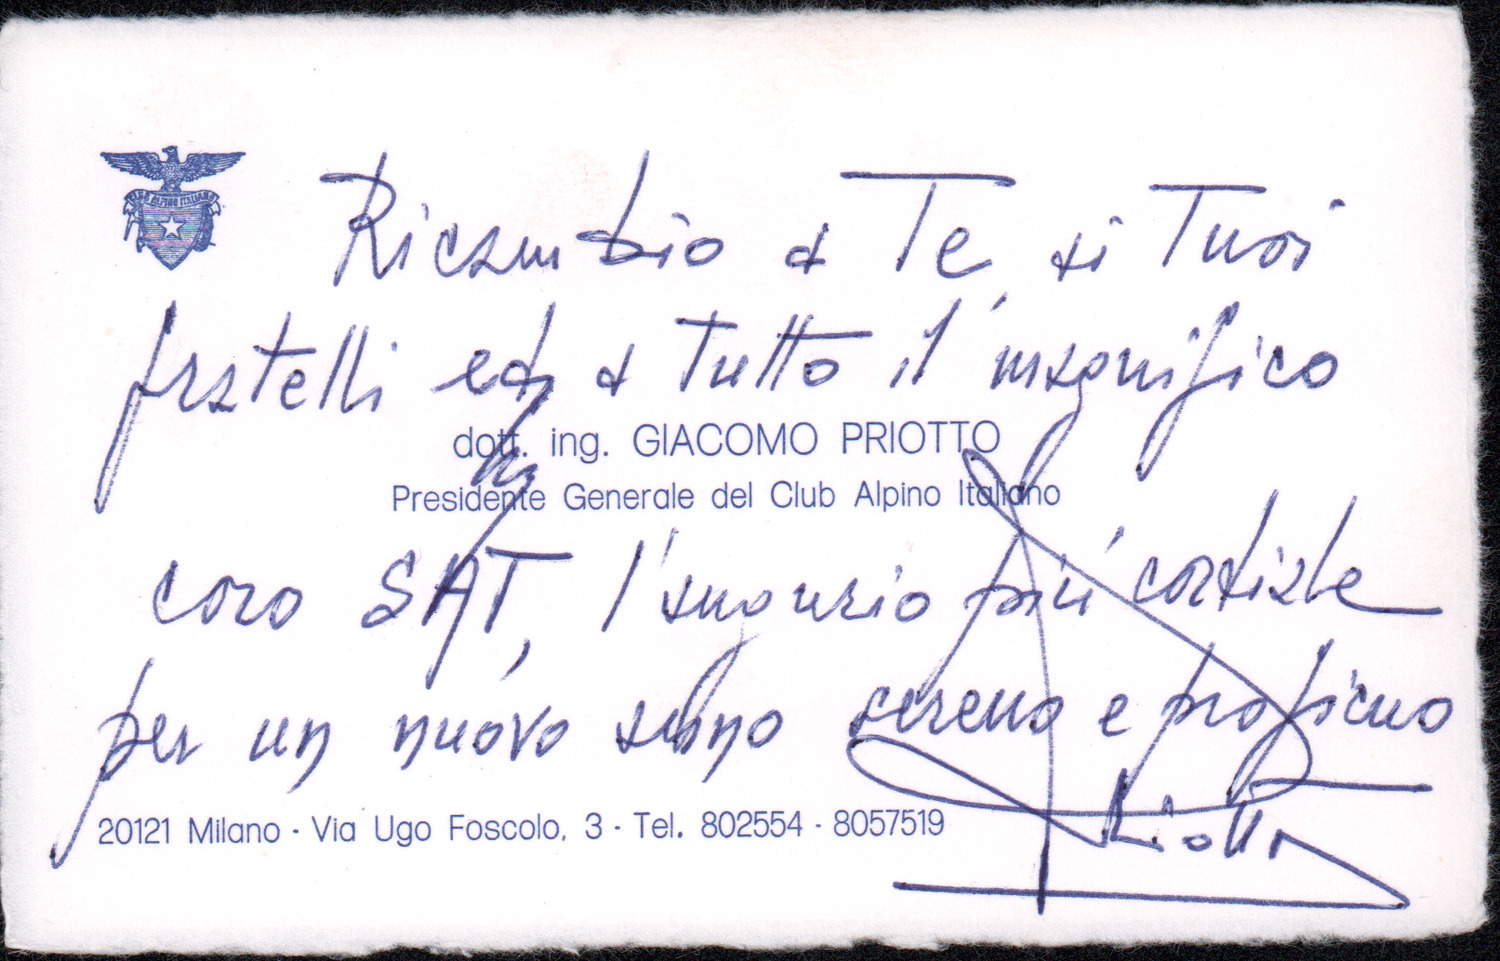 CLUB ALPINO ITALIANO
Ricambio a Te, ai Tuoi
fratelli ed a tutto il magnifico
dott. ing. GIACOMO PRIOTTO
Presidente Generale del Club Alpino Italiano
coro SAT, l'augurio più cordiale
per un nuovo anno sereno e proficuo
Priotto
20121 Milano - Via Ugo Foscolo, 3 - Tel. 802554 - 8057519